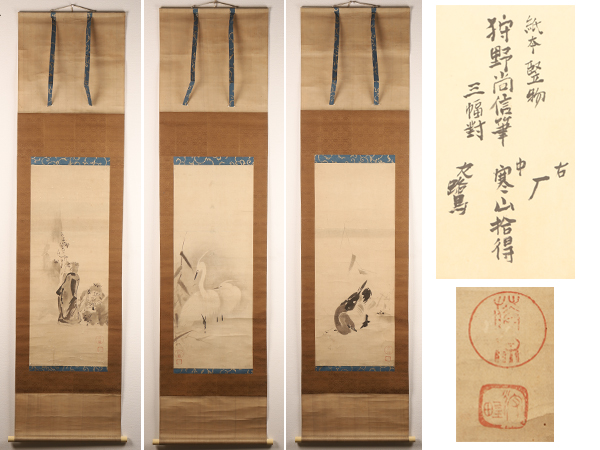 紙本 竪物
狩野尚信筆
三幅對
右 厂
中 寒山拾得
左 鷺